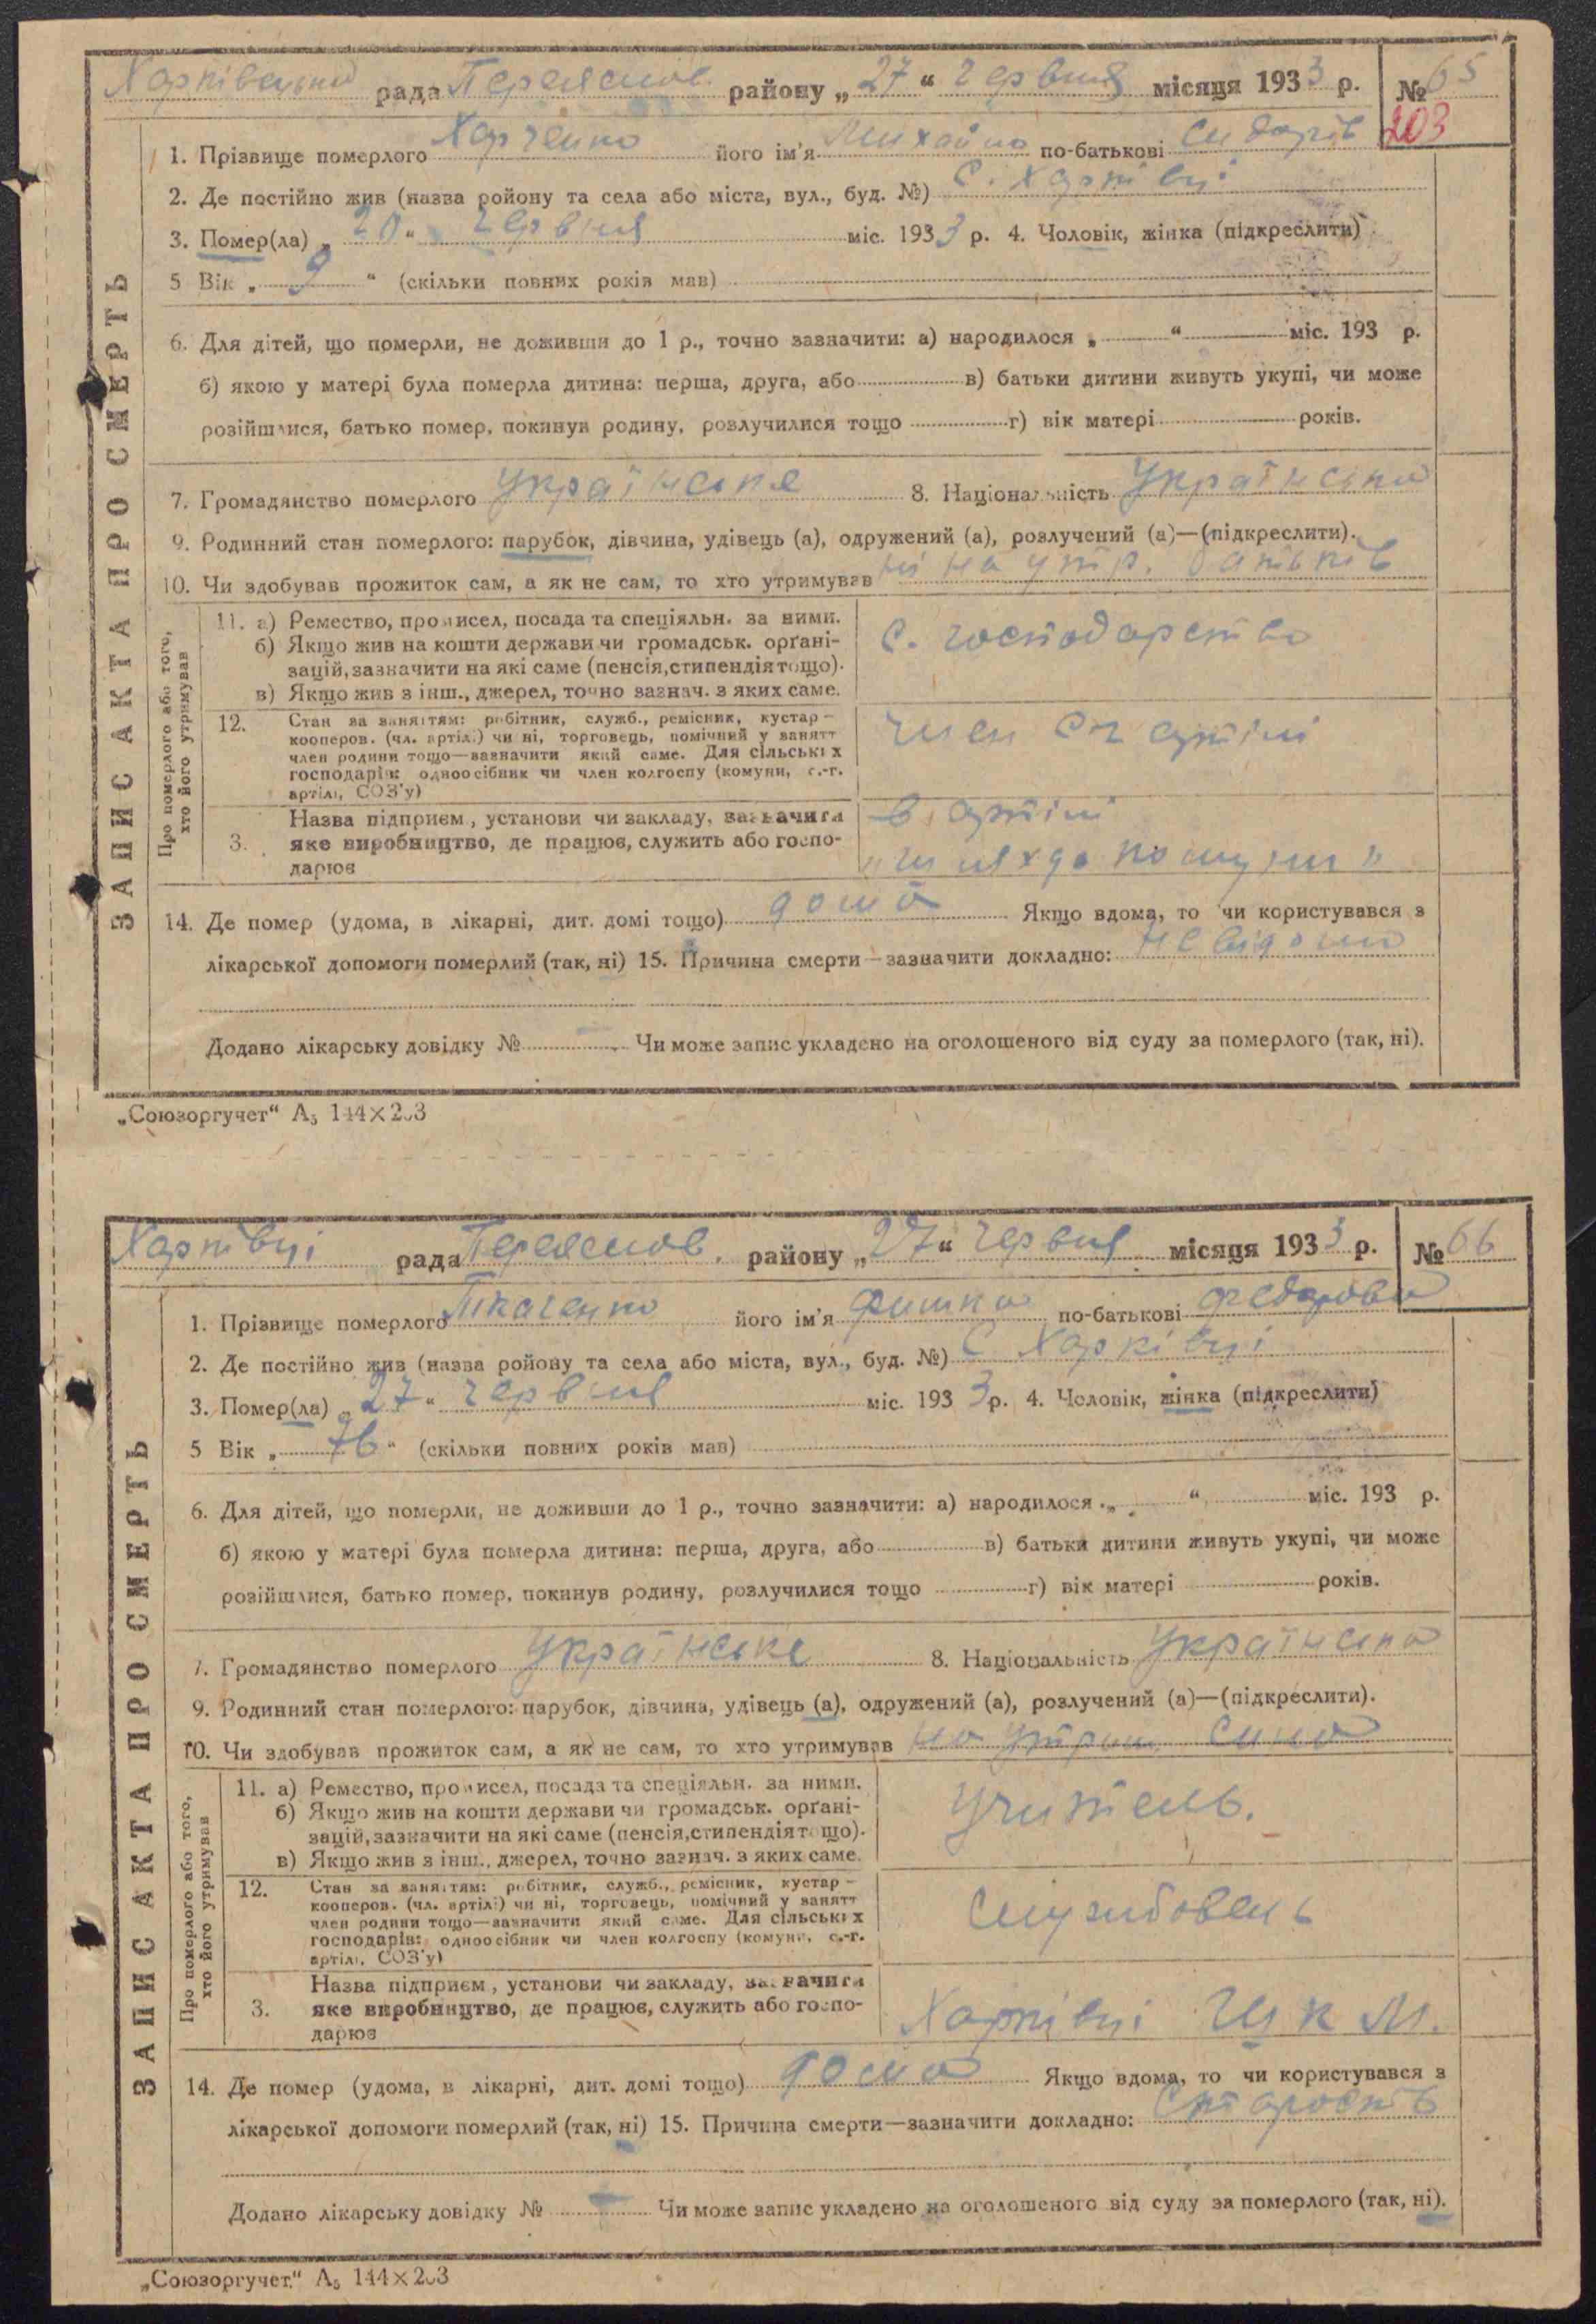 Харківецька рада Переяслов. району „27“ червня місяця 1933 р. № 65
203
1. Прізвище померлого Харченко його ім'я Михайло по-батькові Сидорів
2. Де постійно жив (назва ройону та села або міста, вул., буд. №) С. Харківці
3. Помер(ла) „20“ червня міс. 1933 р. 4. Чоловік, жінка (підкреслити)
5 Вік „9“ (скільки повних років мав)
6. Для дітей, що померли, не доживши до 1 р., точно зазначити: а) народилося „ “ міс. 193 р.
б) якою у матері була померла дитина: перша, друга, або в) батьки дитини живуть укупі, чи може
розійшлися, батько помер, покинув родину, розлучилися тощо г) вік матері років.
7. Громадянство померлого українське 8. Національність українська
9. Родинний стан померлого: парубок, дівчина, удівець (а), одружений (а), розлучений (а)—(підкреслити).
10. Чи здобував прожиток сам, а як не сам, то хто утримував ні на утр. батьків
ЗАПИС АКТА ПРО СМЕРТЬ
Про померлого або того,
хто його утримував
11. а) Ремество, промисел, посада та спеціяльн. за ними.
б) Якщо жив на кошти держави чи громадськ. орґані-
зацій, зазначити на які саме (пенсія, стипендія тощо).
в) Якщо жив з інш., джерел, точно зазнач. з яких саме.
С. господарство
12. Стан за заняттям: робітник, служб., ремісник, кустар—
кооперов. (чл. артілі) чи ні, торговець, помічний у занятт
член родини тощо—зазначити який саме. Для сільських
господарів: одноосібник чи член колгоспу (комуни, с.-г.
артілі, СОЗ'у)
член с-г артілі
Назва підприєм., установи чи закладу, зазначити
3. яке виробництво, де працює, служить або госпо-
дарює
в артілі
„шлях до комуни"
14. Де помер (удома, в лікарні, дит. домі тощо) дома Якщо вдома, то чи користувався з
лікарської допомоги померлий (так, ні) 15. Причина смерти—зазначити докладно: невідомо
Додано лікарську довідку № Чи може запис укладено на оголошеного від суду за померлого (так, ні).
„Союзоргучет“ А5 144×203
Харківці рада Переяслов. району „27“ червня місяця 1933 р. № 66
1. Прізвище померлого Ткаченко його ім'я по-батькові Федорова
2. Де постійно жив (назва ройону та села або міста, вул., буд. №) С. Харківці
3. Помер(ла) „27“ червня міс. 1933 р. 4. Чоловік, жінка (підкреслити)
5 Вік „76“ (скільки повних років мав)
6. Для дітей, що померли, не доживши до 1 р., точно зазначити: а) народилося „ “ міс. 193 р.
б) якою у матері була померла дитина: перша, друга, або в) батьки дитини живуть укупі, чи може
розійшлися, батько помер, покинув родину, розлучилися тощо г) вік матері років.
7. Громадянство померлого українське 8. Національність українська
9. Родинний стан померлого: парубок, дівчина, удівець (а), одружений (а), розлучений (а)—(підкреслити).
10. Чи здобував прожиток сам, а як не сам, то хто утримував на утрим. сина
ЗАПИС АКТА ПРО СМЕРТЬ
Про померлого або того,
хто його утримував
11. а) Ремество, промисел, посада та спеціяльн. за ними.
б) Якщо жив на кошти держави чи громадськ. орґані-
зацій, зазначити на які саме (пенсія, стипендія тощо).
в) Якщо жив з інш., джерел, точно зазнач. з яких саме.
учитель.
12. Стан за заняттям: робітник, служб., ремісник, кустар—
кооперов. (чл. артілі) чи ні, торговець, помічний у занятт
член родини тощо—зазначити який саме. Для сільських
господарів: одноосібник чи член колгоспу (комуни, с.-г.
артілі, СОЗ'у)
службовець
Назва підприєм., установи чи закладу, зазначити
3. яке виробництво, де працює, служить або госпо-
дарює
Харківці Ш К М.
14. Де помер (удома, в лікарні, дит. домі тощо) дома Якщо вдома, то чи користувався з
лікарської допомоги померлий (так, ні) 15. Причина смерти—зазначити докладно: старость
Додано лікарську довідку № Чи може запис укладено на оголошеного від суду за померлого (так, ні).
„Союзоргучет“ А5 144×203